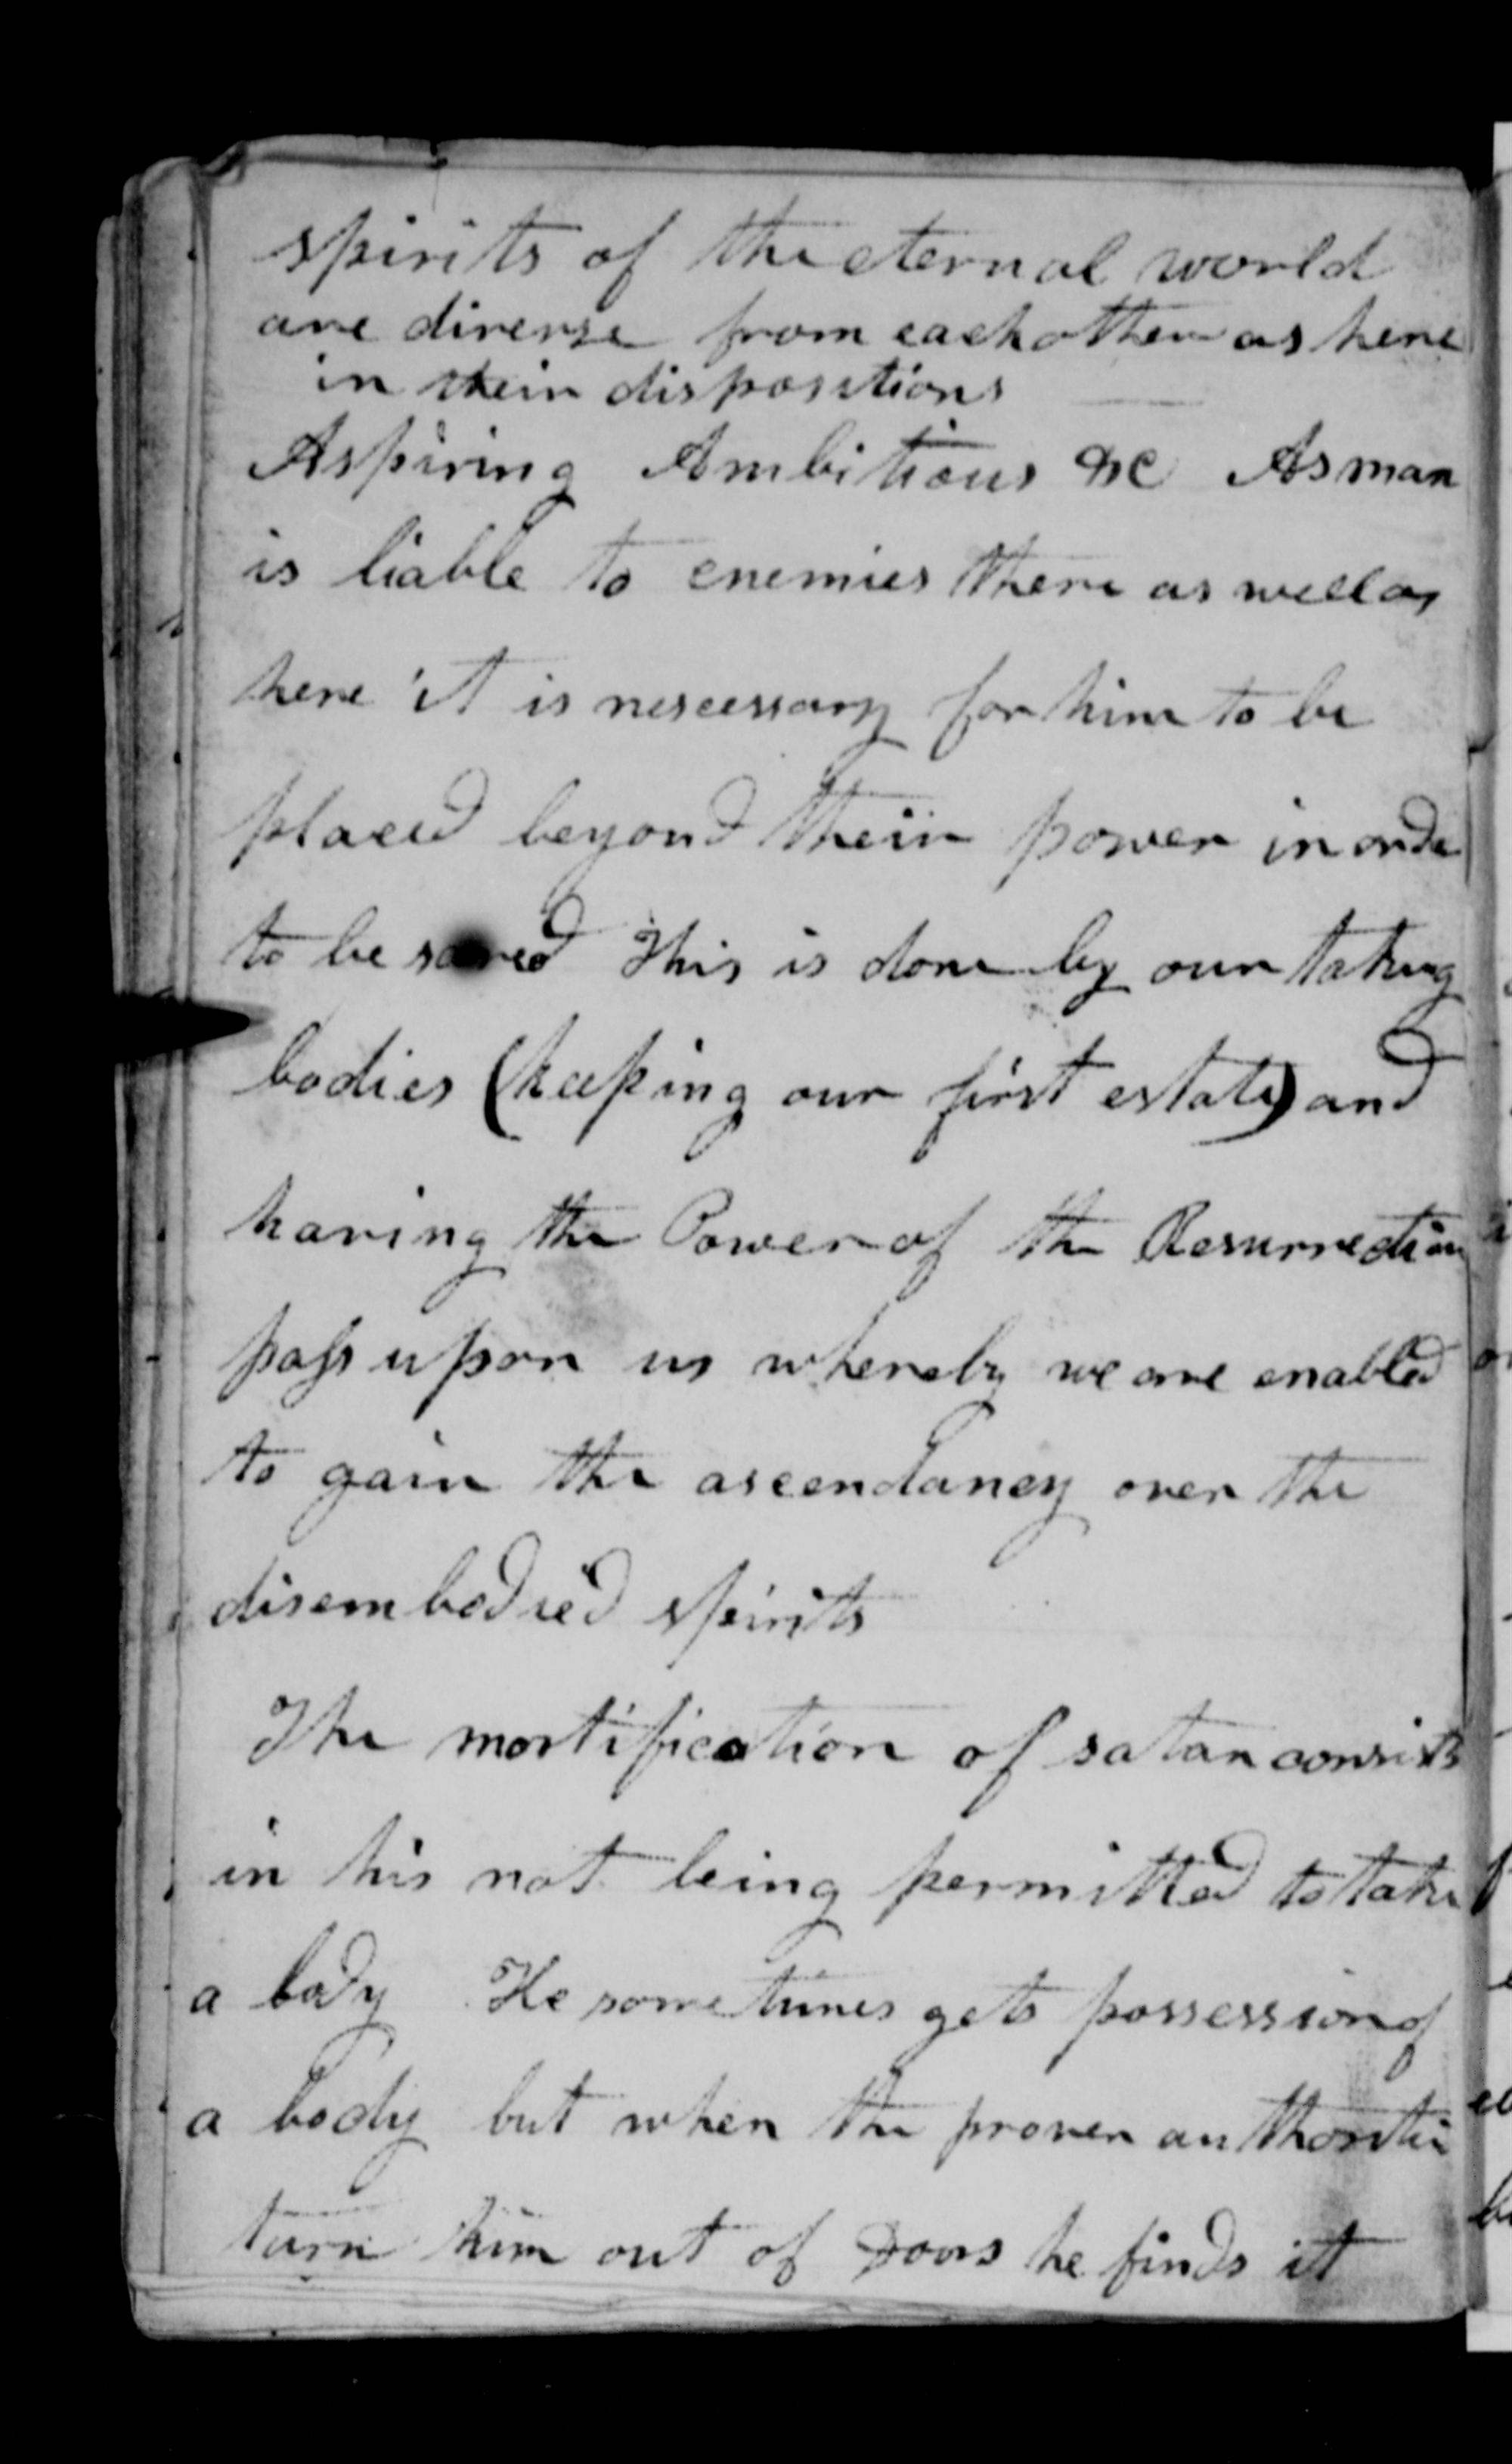 spirits of the eternal world
are diverse from each other as here
in their dispositions
Aspiring Ambitious &c As man
is liable to enemies there as well as
here it is nescessary for him to be
placed beyond their power in orde
to be saved This is done by our taking
bodies (keeping our first estate) and
having the Power of the Resurrection
pass upon us whereby we are enabled
to gain the ascendancy over the
disembodied spirits
The mortification of satan consists
in his not being permitted to take
a body He sometimes gets possession of
a body but when the proven authoritie
turn him out of Doors he finds it